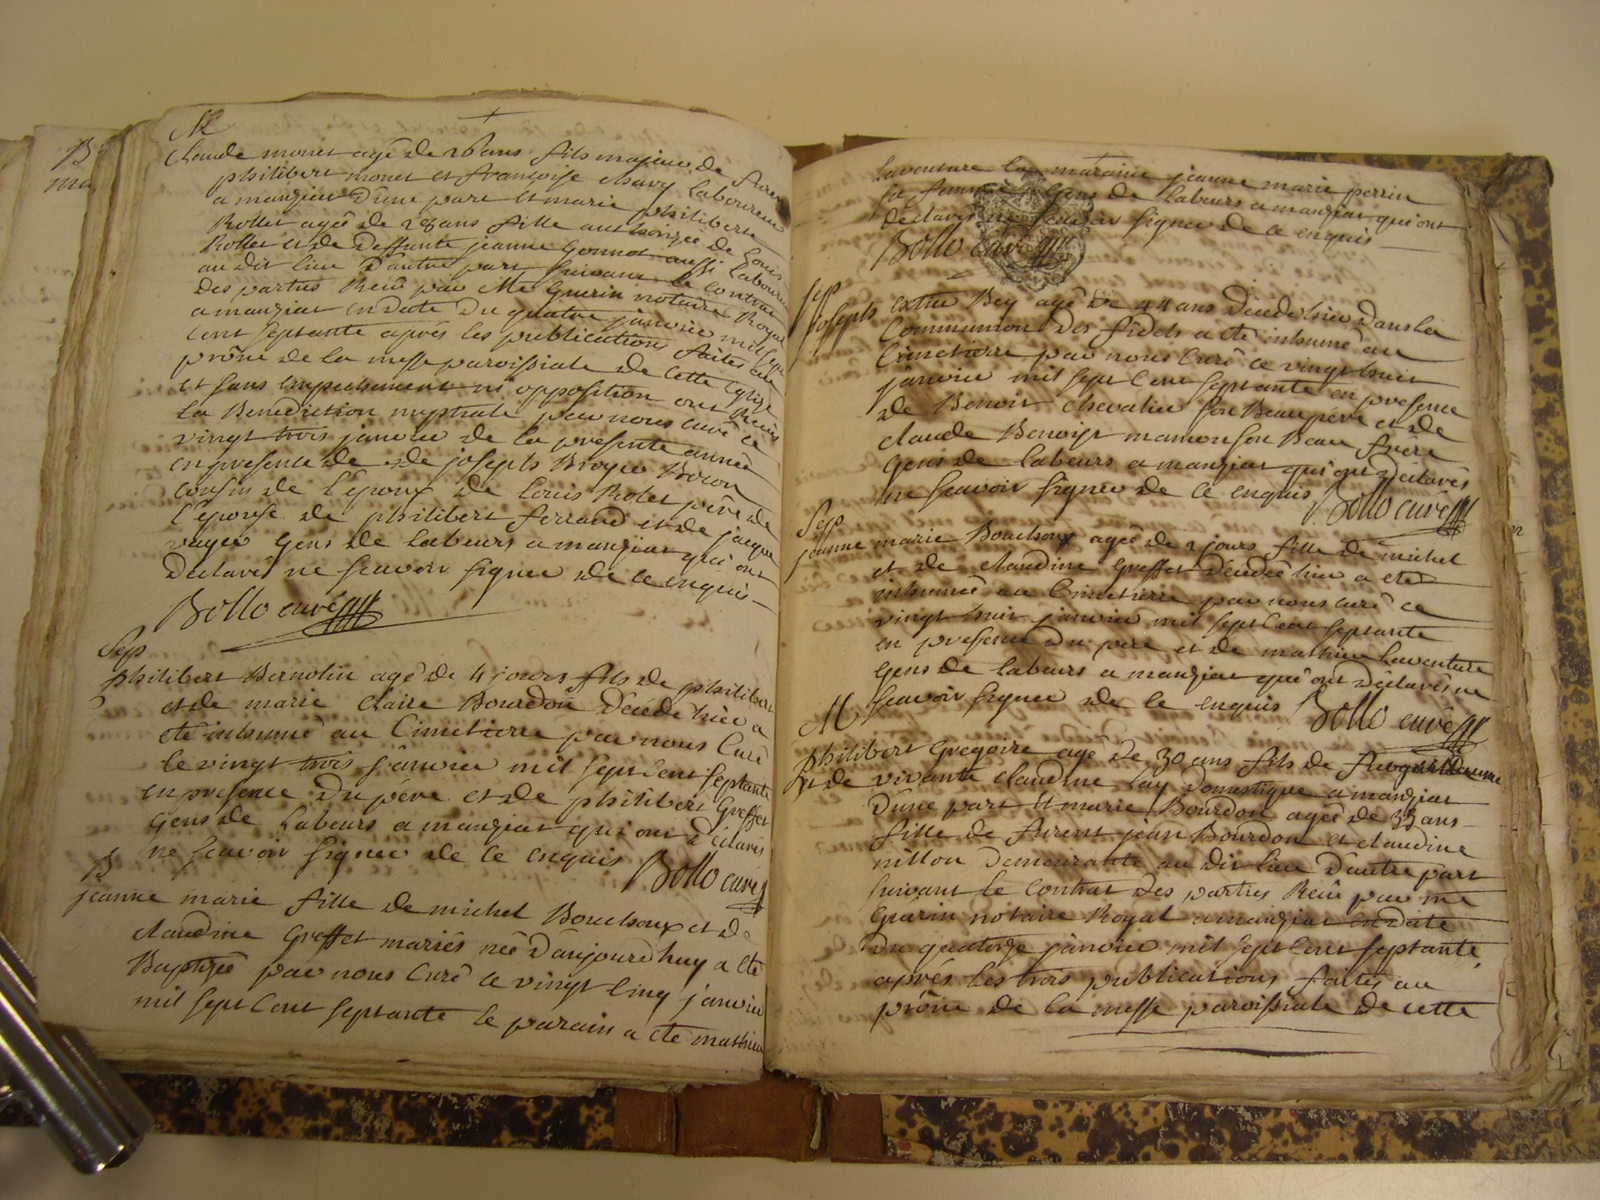 B
ma
M
Claude monet agé de 26 ans fils majeur de
philibert monet et françoise chavy Laboureur
a manziat d'une part et marie philiberte
Rollet agée de 28 ans fille authorizée de Louis
Rollet et de deffunte jeanne Gonnot aussi Laboureur
au dit lieu d'autre part suivant le contrat
des parties Reçû par Me Guerin notaire Royal
a manziat en date du quatre janvier mil sept
cent septante après les publications faites au
prône de la messe paroissiale de cette Eglise
et sans empechement ni opposition ont Reçus
la Benediction nuptiale par nous curé ce
vingt trois janvier de la presente année
en presence de de josephs Broyer
cousin de l'epoux de Louis Rolet père de
l'epouse de philibert ferrand et de jacque
vayer gens de Labeurs a manziat qui ont
declarés ne scavoir signer de ce enqui
Bollo curé
Sep
philibert Bernolin agé de 4 jours fils de philibert
et de marie Claire Bourdon décédé hier a
été inhumé au Cimetierre par nous Curé
le vingt trois janvier mil sept cent septante
en presence du père et de philibert Greffet
gens de Labeurs a manziat qui ont déclarés
ne scavoir signer de ce enquis Bollo curé
B
jeanne marie fille de michel Bouchoux et de
claudine Greffet mariés née d'aujourd'huy a été
Baptisée par nous Curé ce vingt cinq janvier
mil sept cent septante le parain a été mathieu
Laventure la maraine jeanne marie perrin
sa femme gens de Labeurs a manziat qui ont
declarés ne scavoir signer de ce enquis
Bollo curé
Sep
josephs Bey agé de 44 ans décédé hier dans la
Communion des fidels a été inhumé au
Cimetierre par nous Curé ce vingt huit
janvier mil sept cent septante en presence
de Benoit chevalier son Beau père et de
claude Benoist mamon son Beau frère
gens de labeurs a manziat qui ont declarés
ne scavoir signer de ce enquis Bollo curé
Sep
jeanne marie Bouchoux agée de 2 jours fille de michel
et de claudine Greffet décédée hier a été
inhumée au Cimetierre par nous curé ce
vingt huit janvier mil sept cent septante
en presence du père et de mathieu Laventure
gens de labeurs a manziat qui ont declarés ne
scavoir signer de ce enquis Bollo curé
M
philibert Gregoire agé de 30 ans fils de
et de vivante claudine Lay domestique a manziat
d'une part et marie Bourdon agée de 35 ans
fille de jean Bourdon et claudine
nillon demeurante au dit lieu d'autre part
suivant le contrat des parties Reçû par me
Guérin notaire Royal a manziat en date
du quatorze janvier mil sept cent septante
après les trois publications faites au
prône de la messe paroissiale de cette